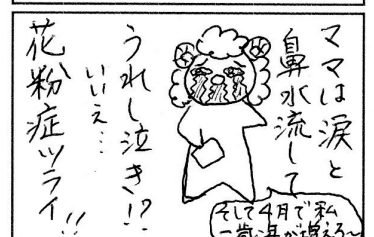 ママは涙と
鼻水流して
うれし泣き!?
いいえ…
花粉症ツライ!!
そして4月で私
一歳年が増える〜